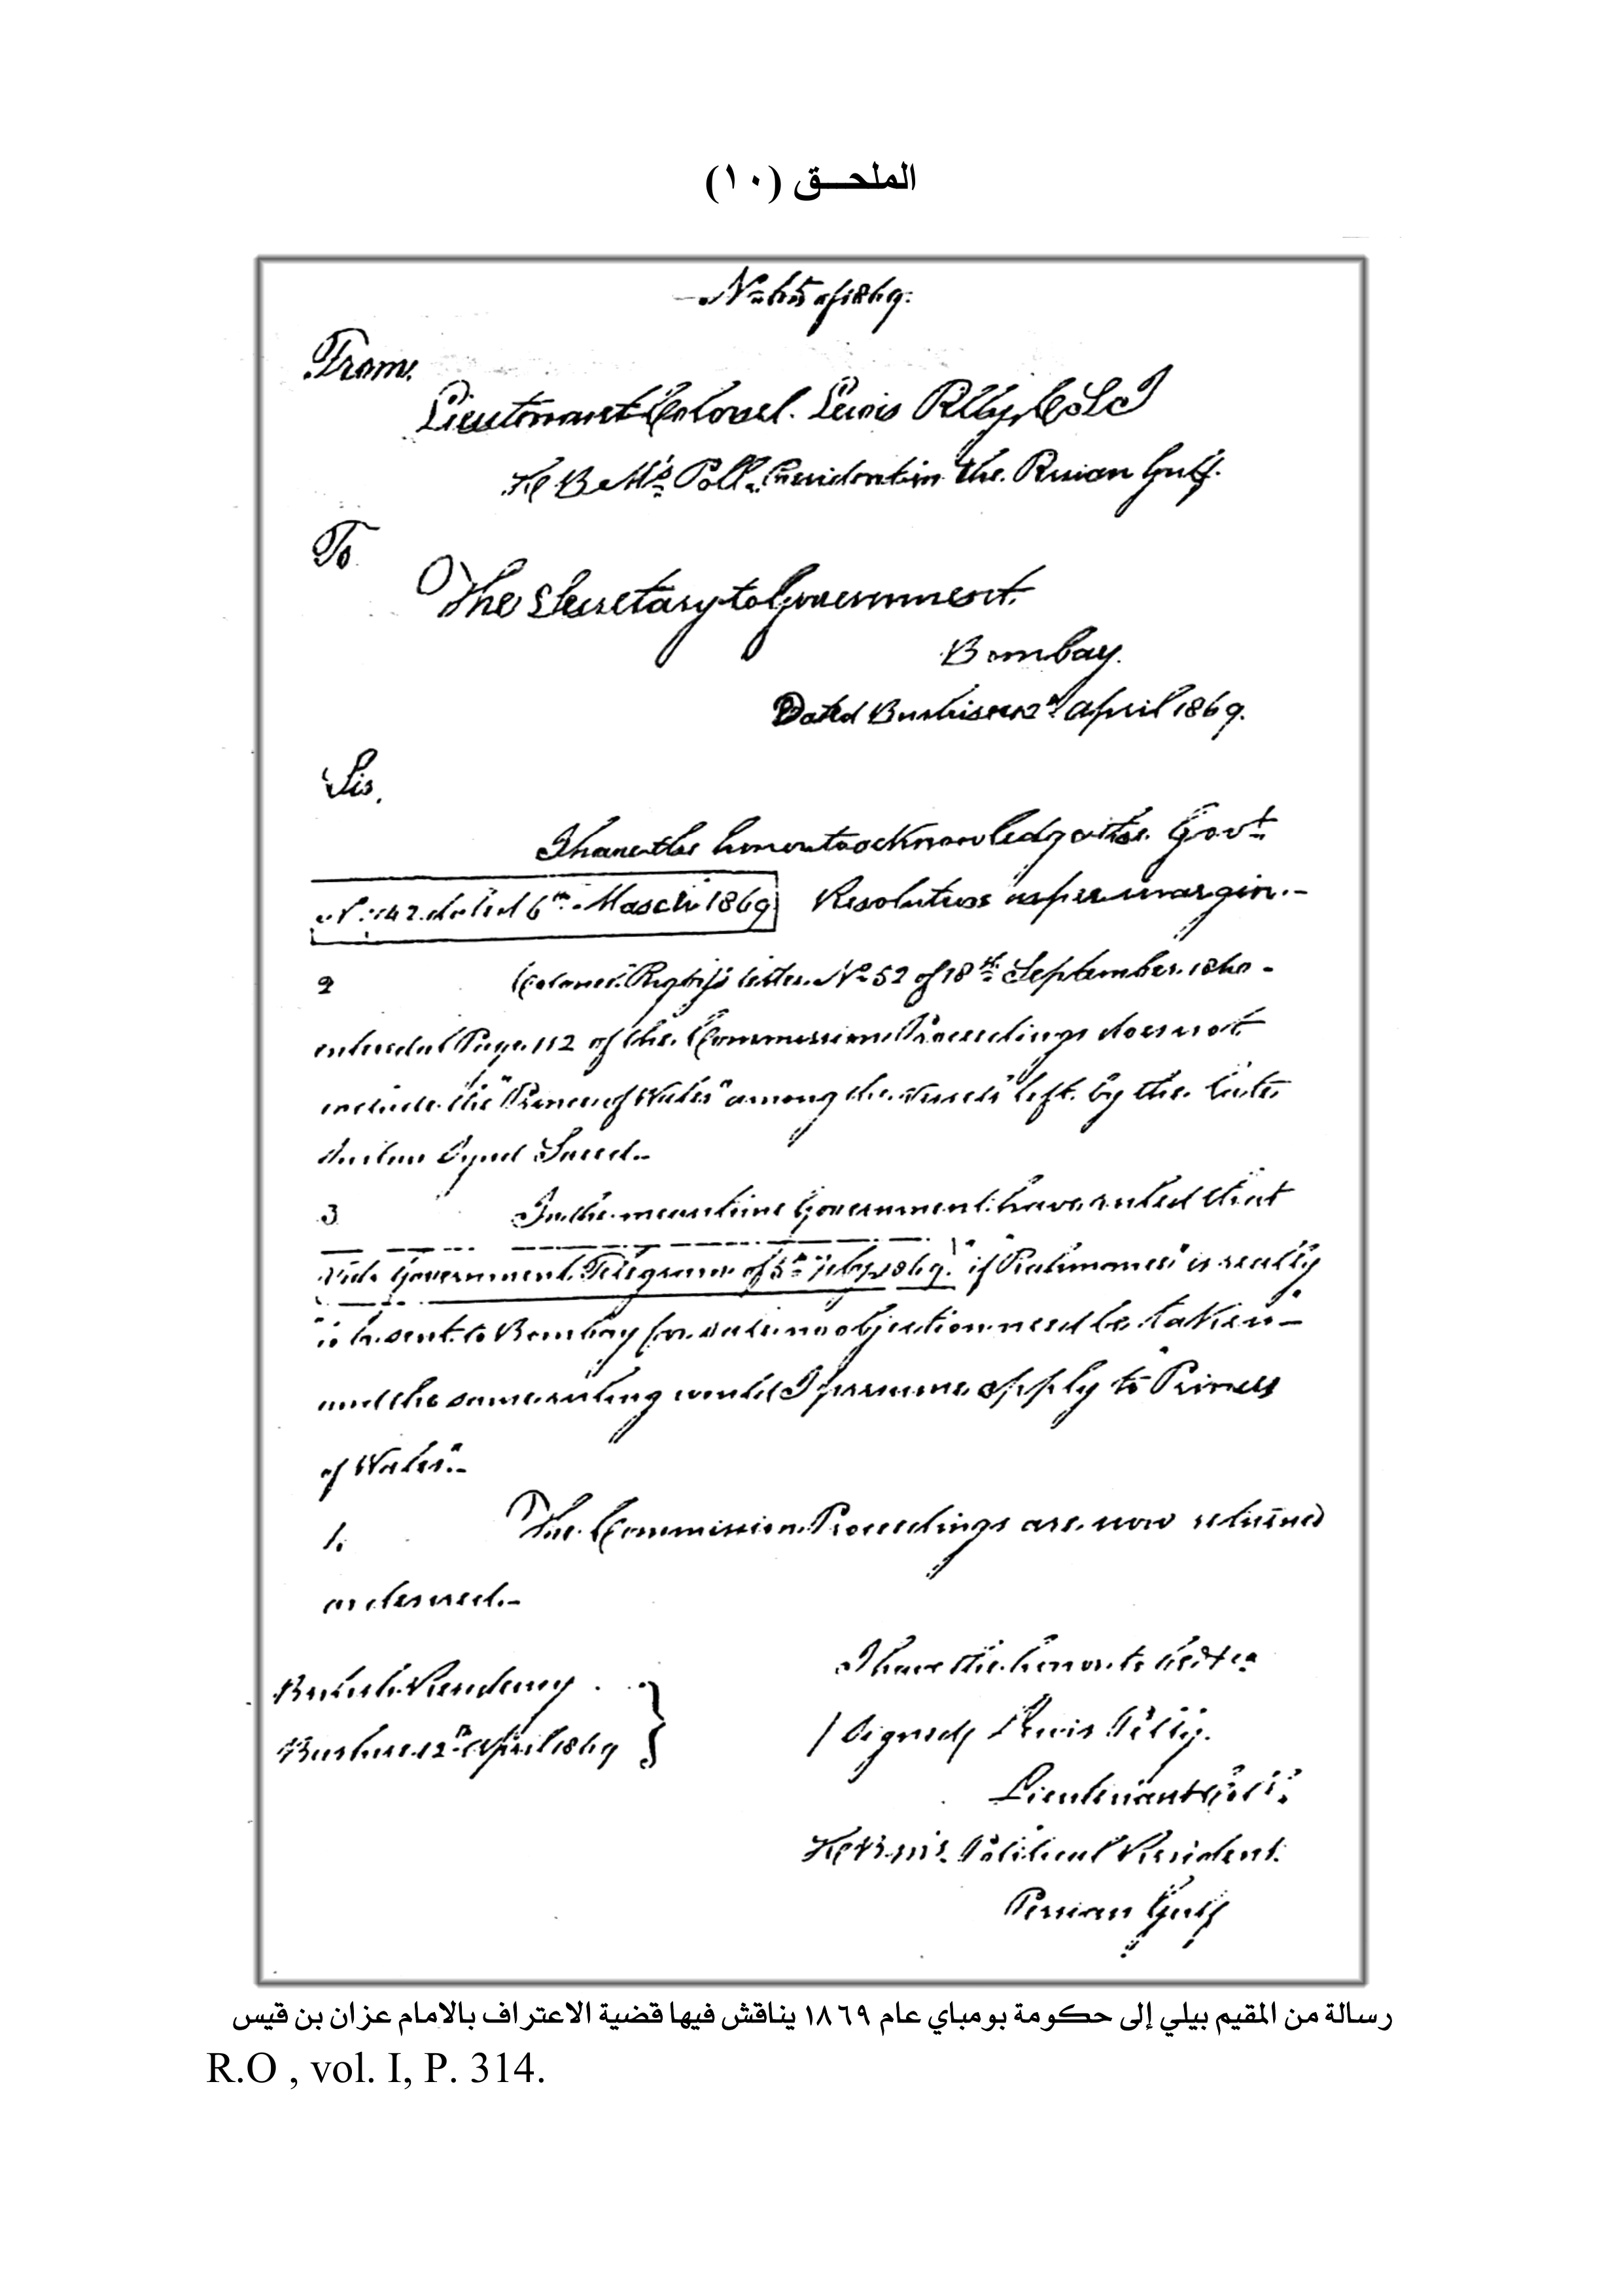 الملحـــق (١٠)
No 65 of 1869.
From
Lieutenant Colonel. Lewis Pelly, C S I
H B M's Poll. Resident in the Persian Gulf.
To
The Secretary to Government.
Bombay.
Dated Bushire 12th April 1869.
Sir,
I have the honor to acknowledge the Govt
No 142 dated 6th March 1869 Resolution as per margin.-
2 Colonel Rigby's letter No 52 of 18th September 1860-
entered at Page 112 of the Commission Proceedings does not
include the "Prince of Wales" among the vessels left by the late
Sultan Syud Saeed.-
3 In the meantime Government have ruled that
Vide Government Telegram of 5th Feby 1869. "if Rahmanee" is really
"to be sent to Bombay for sale no objection need be taken-
and the same ruling would I presume apply to Prince
of Wales".-
The Commission Proceedings are now returned
as desired.-
I have the honor to be &ca
British Residency
(Signed) Lewis Pelly.
Bushire 12th April 1869
Lieutenant Col.
H B M's Political Resident.
Persian Gulf
رسالة من المقيم بيلي إلى حكومة بومباي عام ١٨٦٩ يناقش فيها قضية الاعتراف بالامام عزان بن قيس
R.O , vol. I, P. 314.